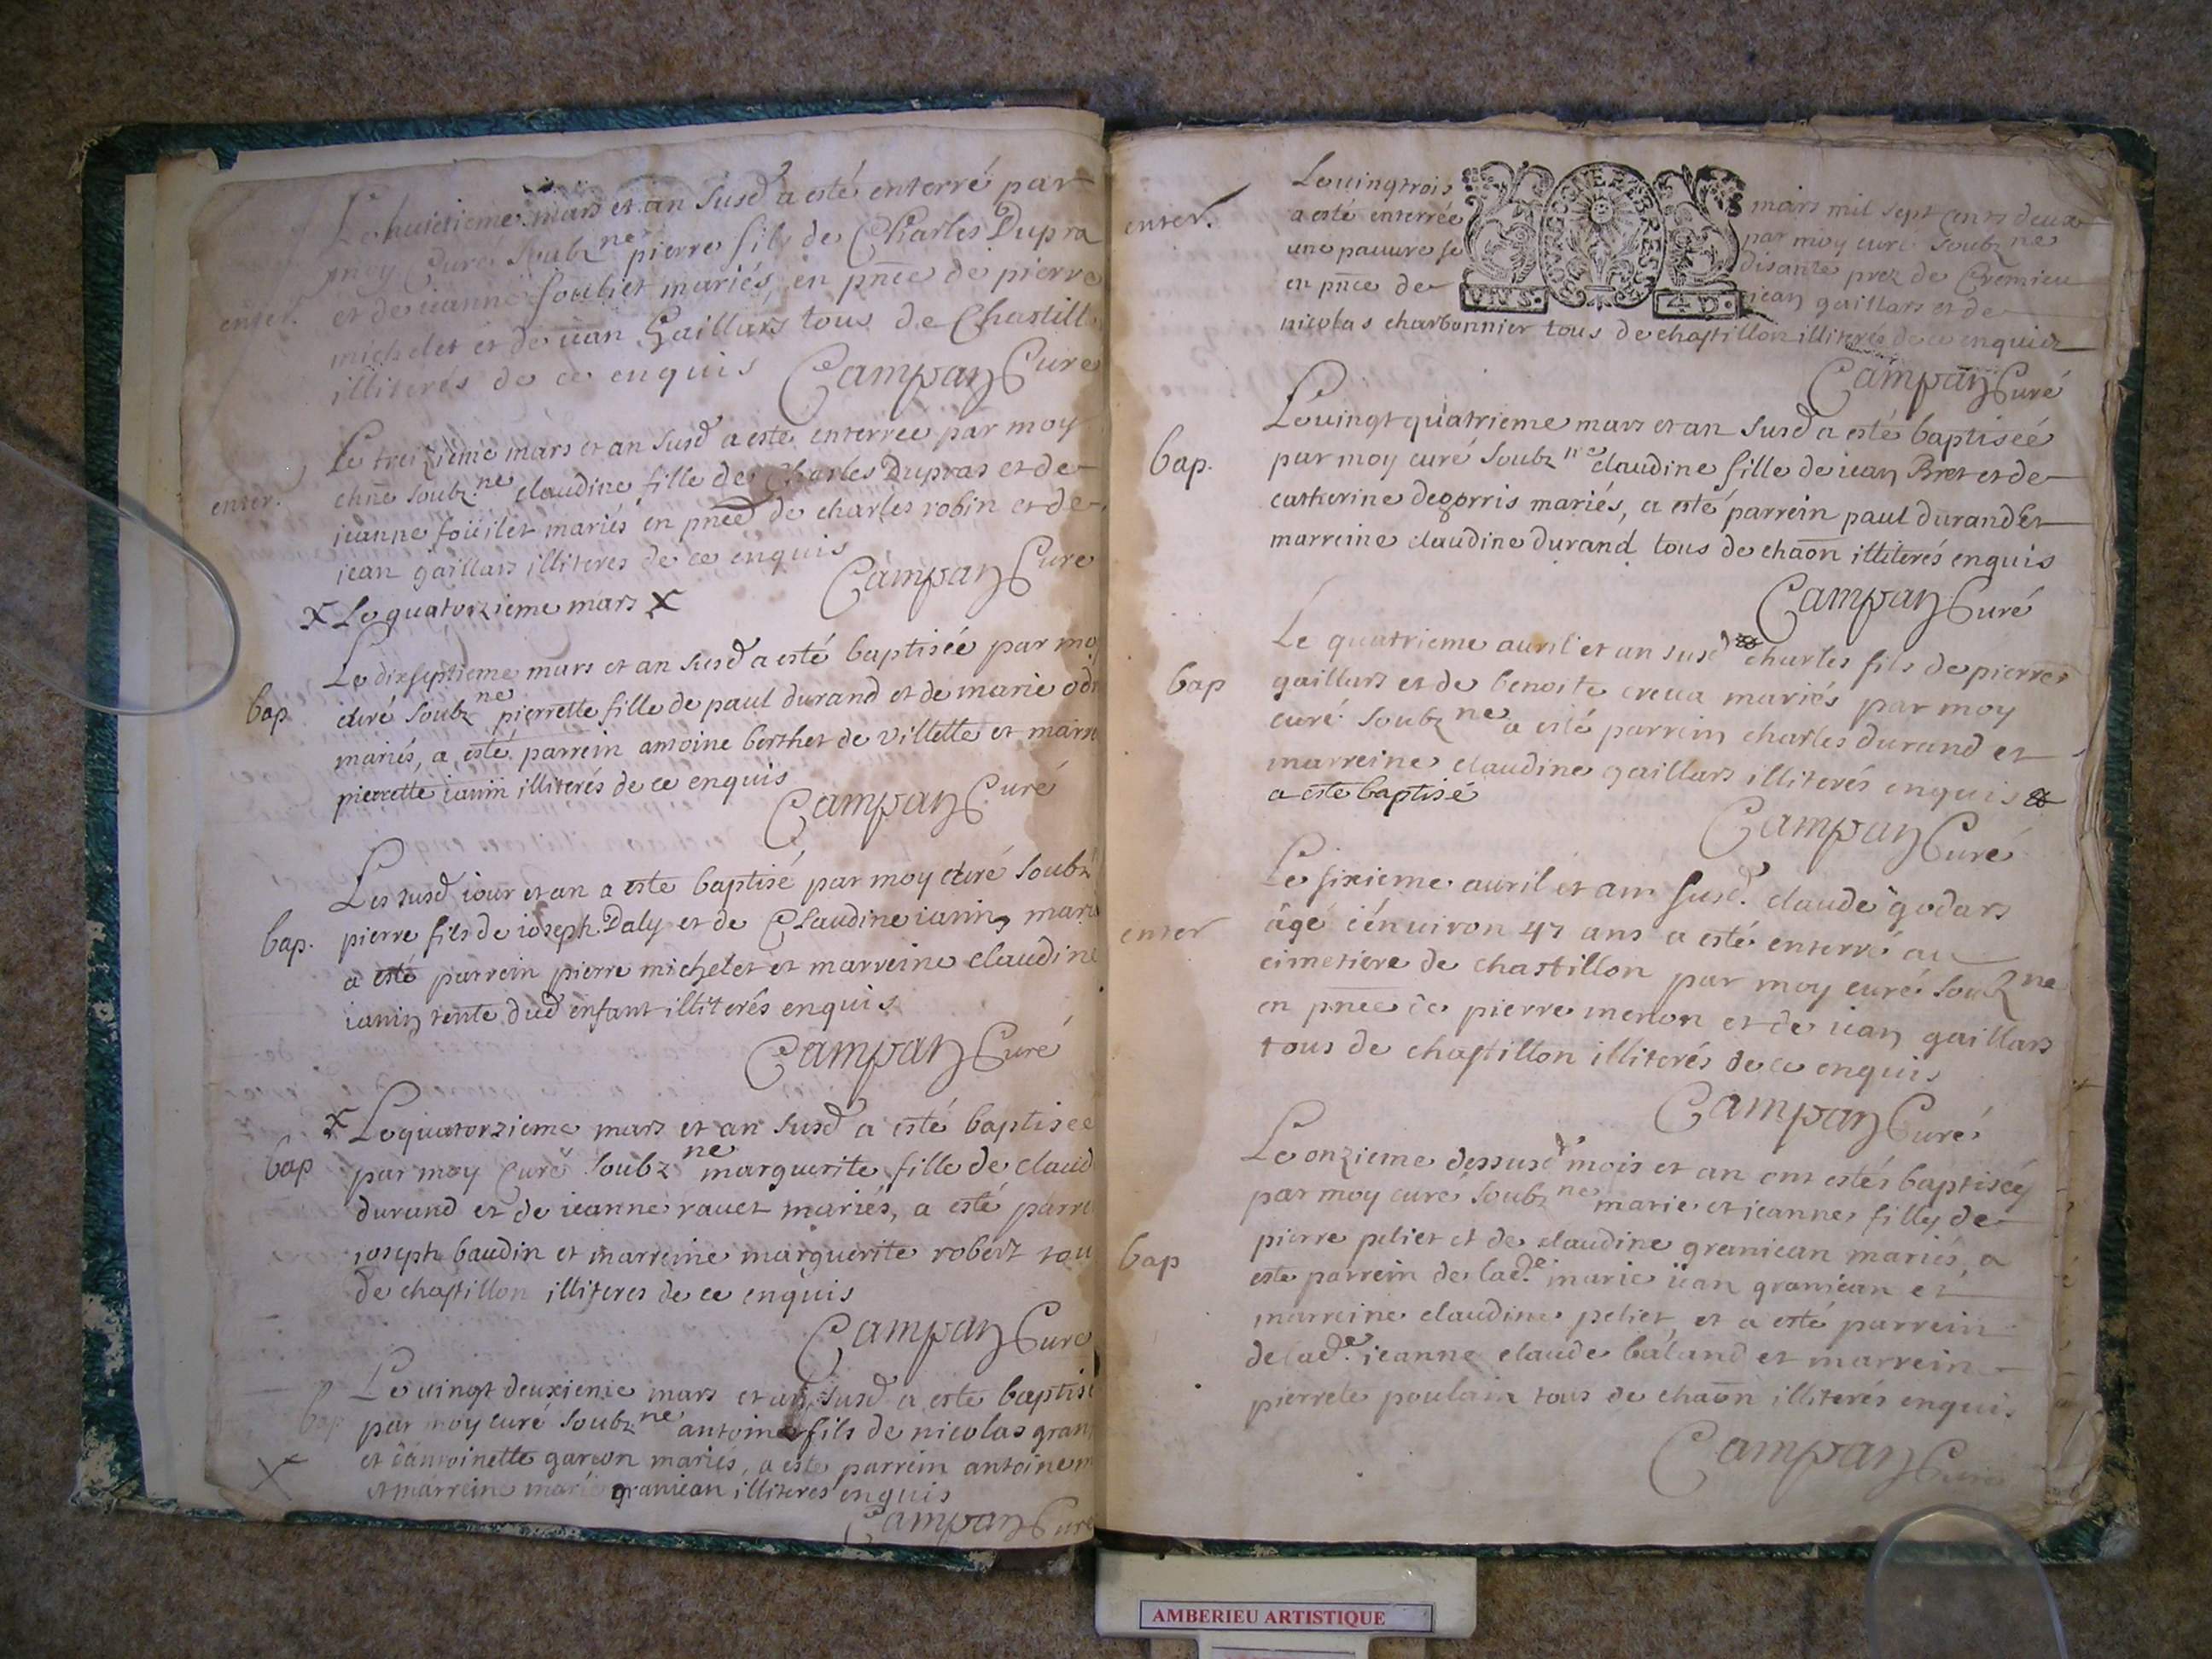 Le huictieme mars et an susd a esté enterré par
moy Curé soubz ne pierre fils de Charles Dupra
enter. et de ieanne souliet mariés, en pnce de pierre
michelet et de iean Gaillars tous de Chastill
illiterés de ce enquis Campan Curé
Le treizieme mars et an susd a esté enterreé par moy
enter. soubz ne claudine fille de Charles Dupras et de
ieanne mariés en pnce de charles robin et de
iean gaillars illiteres de ce enquis
Campan Cure
X Le quatorzieme mars X
Le dixseptieme mars et an susd a esté baptiseé par mo
bap curé soubz ne pierrette fille de paul durand et de marie
mariés, a esté parrein antoine berthet de Villette et marre
pierrette ianin illiterés de ce enquis
Campan Curé
Les susd iour et an a este baptisé par moy curé soubz
bap. pierre fils de ioseph Daly et de Claudine ianin mari
a esté parrein pierre michelet et marreine claudine
ianin tente dud enfant illiterés enquis
Campan Curé
X Le quatorzieme mars et an susd a esté baptiseé
bap par moy Curé soubz ne marguerite fille de claud
durand et de ieanne rauet mariés, a esté parre
ioseph baudin et marreine marguerite robert tou
de chastillon illiteres de ce enquis
Campan Cure
Le uingt deuxieme mars et an susd a este baptisé
bap par moy curé soubz ne antoine fils de nicolas gran
et dantoinette garson mariés, a este parrein antoine m
X et marreine marie granican illiteres enquis
Campan Cure
Le uingtrois mars mil sept cents deux
enter. a esté enterrée par moy curé soubz ne
une pauure se disante prez de Cremieu
en pnce de iean gaillars et de
GENERALITE DE BOURGOGNE
VN S. 4 D.
nicolas charbonnier tous de chastillon illiterés de ce enquis
Campan Curé
Le uingt quatrieme mars et an susd a esté baptiseé
bap. par moy curé soubz ne claudine fille de iean Bret et de
catherine degorris mariés, a esté parrein paul durand et
marreine claudine durand tous de chaon illiterés enquis
Campan Curé
Le quatrieme auril et an susd charles fils de pierre
bap gaillars et de benoite creua mariés par moy
curé soubz ne a esté parrein charles durand et
marreine claudine gaillars illiterés enquis
a este baptisé
Campan Curé
Le sixieme auril et an susd. claude godars
enter âgé denuiron 47 ans a esté enterré au
cimetiere de chastillon par moy curé soubz ne
en pnce de pierre menon et de iean gaillars
tous de chastillon illiterés de ce enquis
Campan Curé
Le onzieme dessusd mois et an ont estés baptiseés
par moy curé soubz ne marie et ieanne filles de
bap pierre peliet et de claudine granican mariés, a
este parrein de lad.e marie iean granican et
marreine claudine peliet, et a esté parrein
de lad.e ieanne claude baland et marrein
pierrete poulain tous de chaon illiterés enqui.
Campan Curé
AMBERIEU ARTISTIQUE